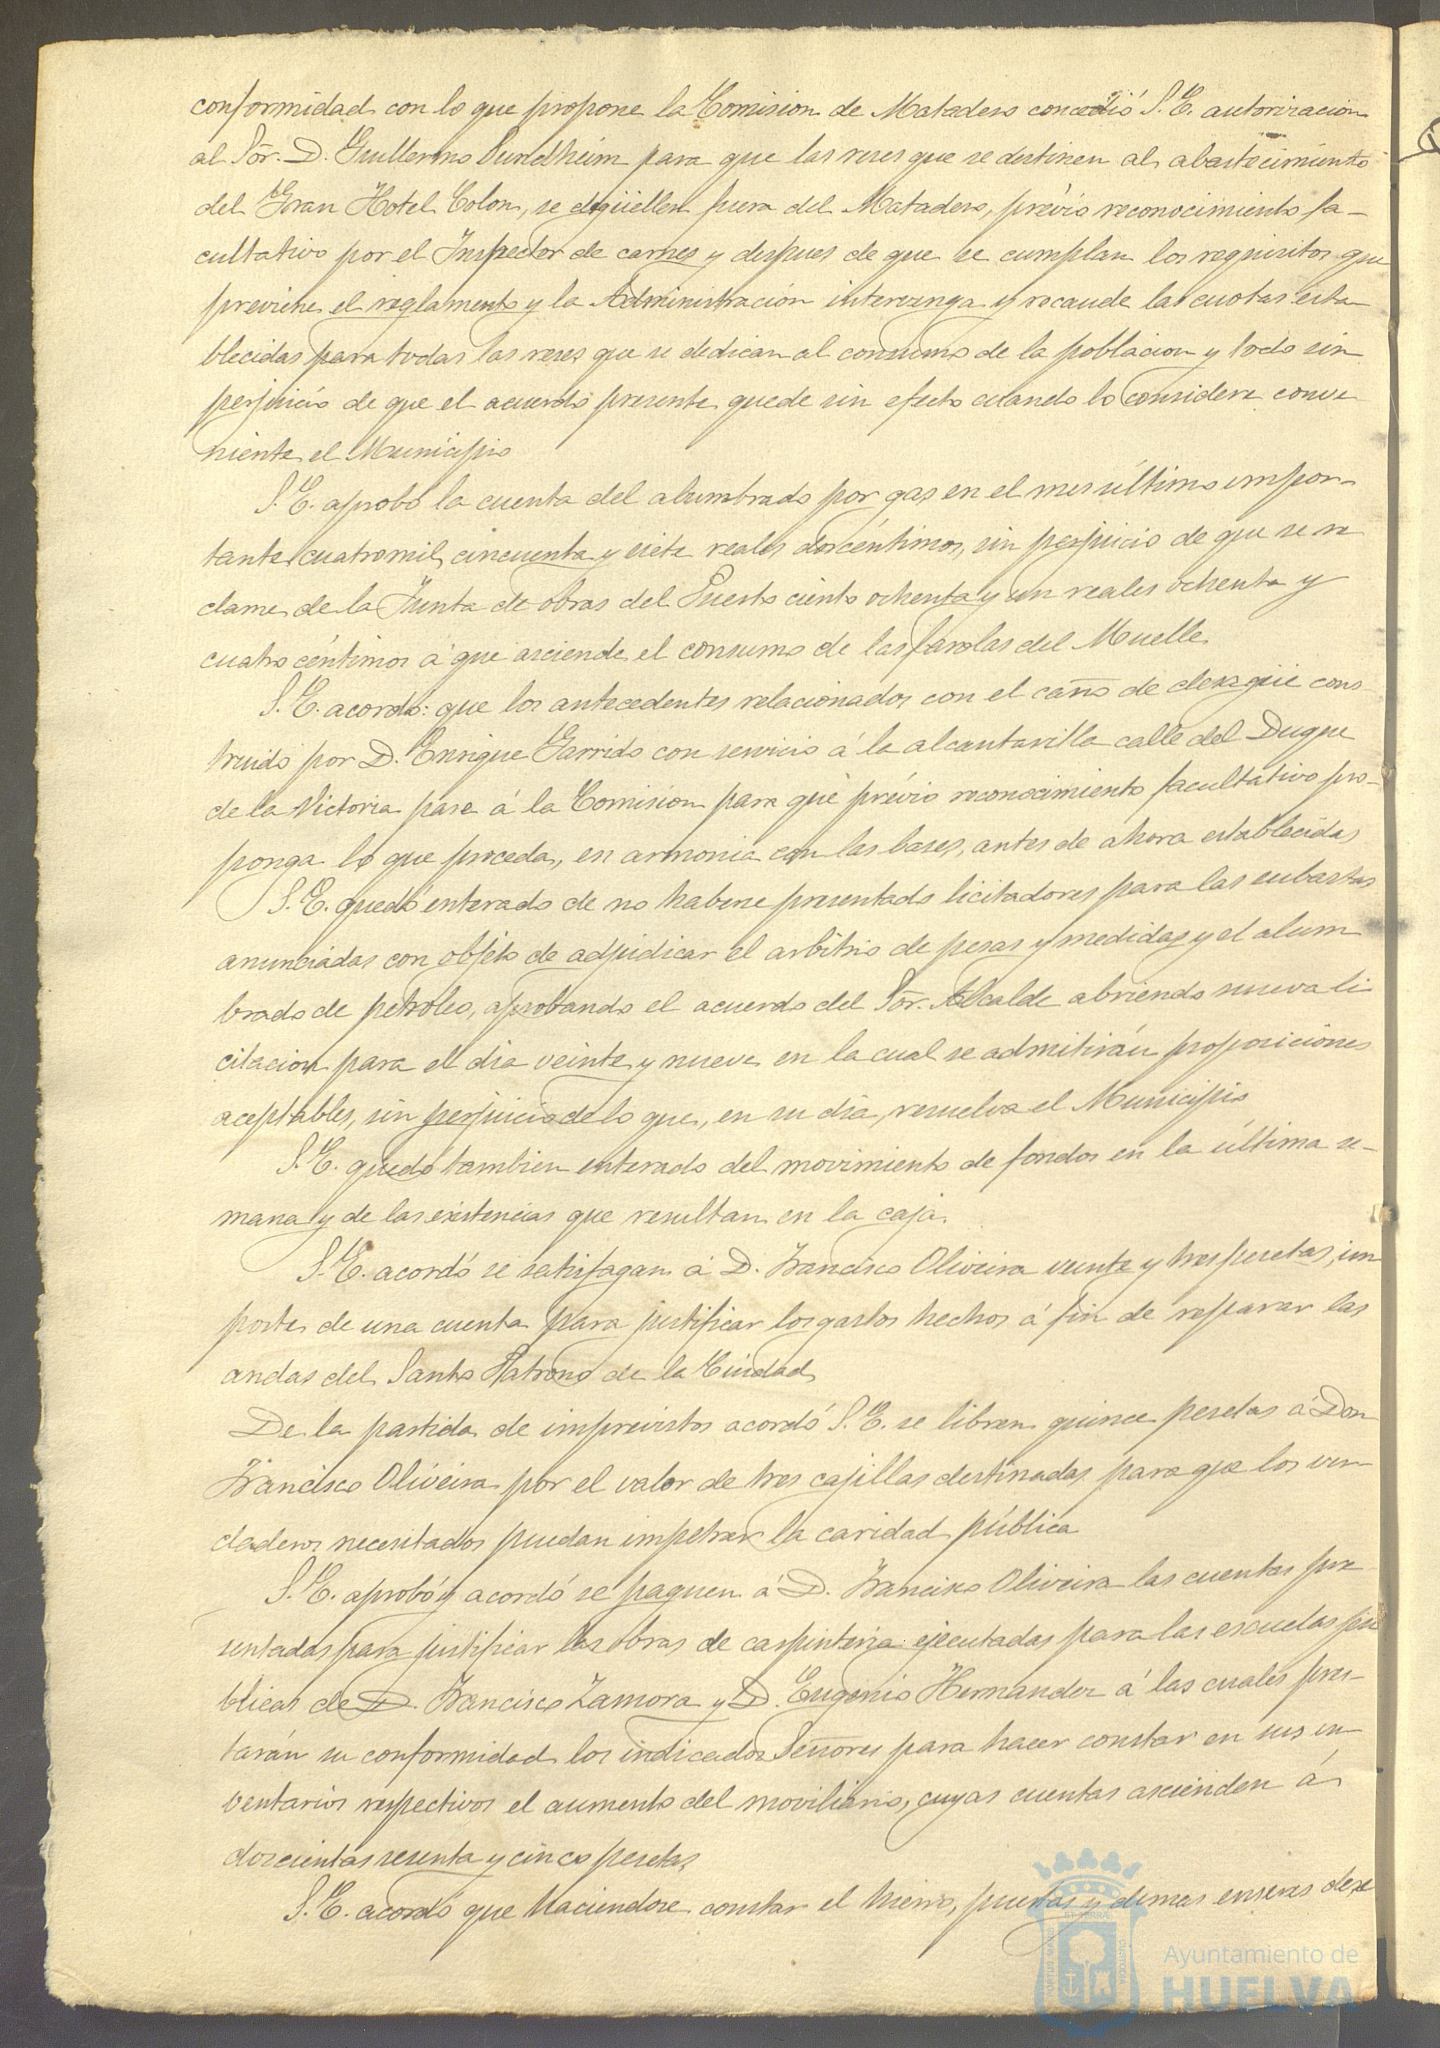 conformidad con lo que propone la Comision de Matadero concedió S. E. autorizacion
al Sõr. D. Guillermo Sundheim para que las reses que se destinen al abastecimiento
del Gran Hotel Colon, se degüellen fuera del Matadero, prévio reconocimiento fa-
cultativo por el Inspector de carnes y despues de que se cumplan los requisitos que
previene el reglamento y la Administración intervenga y recaude las cuotas esta
blecidas para todas las reses que se dedican al consumo de la poblacion y todo sin
perjuicio de que el acuerdo presente quede sin efecto cuando lo considere conve
niente el Municipio
S. E. aprobó la cuenta del alumbrado por gas en el mes último impor-
tante cuatromil cincuenta y siete reales dos céntimos, sin perjuicio de que se re
clame de la Junta de obras del Puerto ciento ochenta y un reales ochenta y
cuatro céntimos á que asciende el consumo de las farolas del Muelle
S. E. acordó: que los antecedentes relacionados con el caño de desagüe cons-
truido por D. Enrique Garrido con servicio á la alcantarilla calle del Duque
de la Victoria pase á la Comision para que prévio reconocimiento facultativo pro-
ponga lo que proceda, en armonia con las bases, antes de ahora establecidas
S. E. quedó enterado de no haberse presentado licitadores para las subastas
anunciadas con objeto de adjudicar el arbitrio de pesas y medidas y el alum
brado de petroleo, aprobando el acuerdo del Sõr. Alcalde abriendo nueva li
citacion para el dia veinte y nueve en la cual se admitirán proposiciones
aceptables, sin perjuicio de lo que, en su dia, resuelva el Municipio
S. E. quedó tambien enterado del movimiento de fondos en la última se-
mana y de las existencias que resultan en la caja.
S. E. acordó se satisfagan á D. Francisco Oliveira veinte y tres pesetas, im
porte de una cuenta para justificar los gastos hechos á fin de reparar las
andas del Santo Patrono de la Ciudad
De la partida de imprevistos acordó S. E. se libren quince pesetas á Don
Francisco Oliveira por el valor de tres cajillas destinadas para que los ver-
daderos necesitados puedan impetrar la caridad pública
S. E. aprobó y acordó se paguen á D. Francisco Oliveira las cuentas pre
sentadas para justificar las obras de carpinteria ejecutadas para las escuelas pú
blicas de D. Francisco Zamora y D. Eugenio Hernandez á las cuales pres-
tarán su conformidad los indicados Señores para hacer constar en sus in-
ventarios respectivos el aumento del moviliario, cuyas cuentas ascienden á
doscientas sesenta y cinco pesetas
S. E. acordó que haciendose constar el hierro, puertas y demas enseres de
Ayuntamiento de
HUELVA